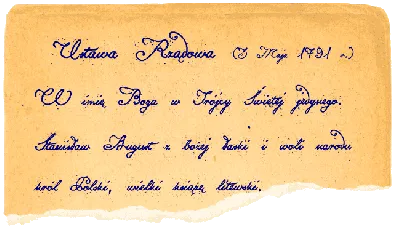 Ustawa Rządowa (3 Maja 1791 r.)
W imię Boga w Trójcy Świętej jedynego.
Stanisław August z bożej łaski i woli narodu
król Polski, wielki książę litewski.